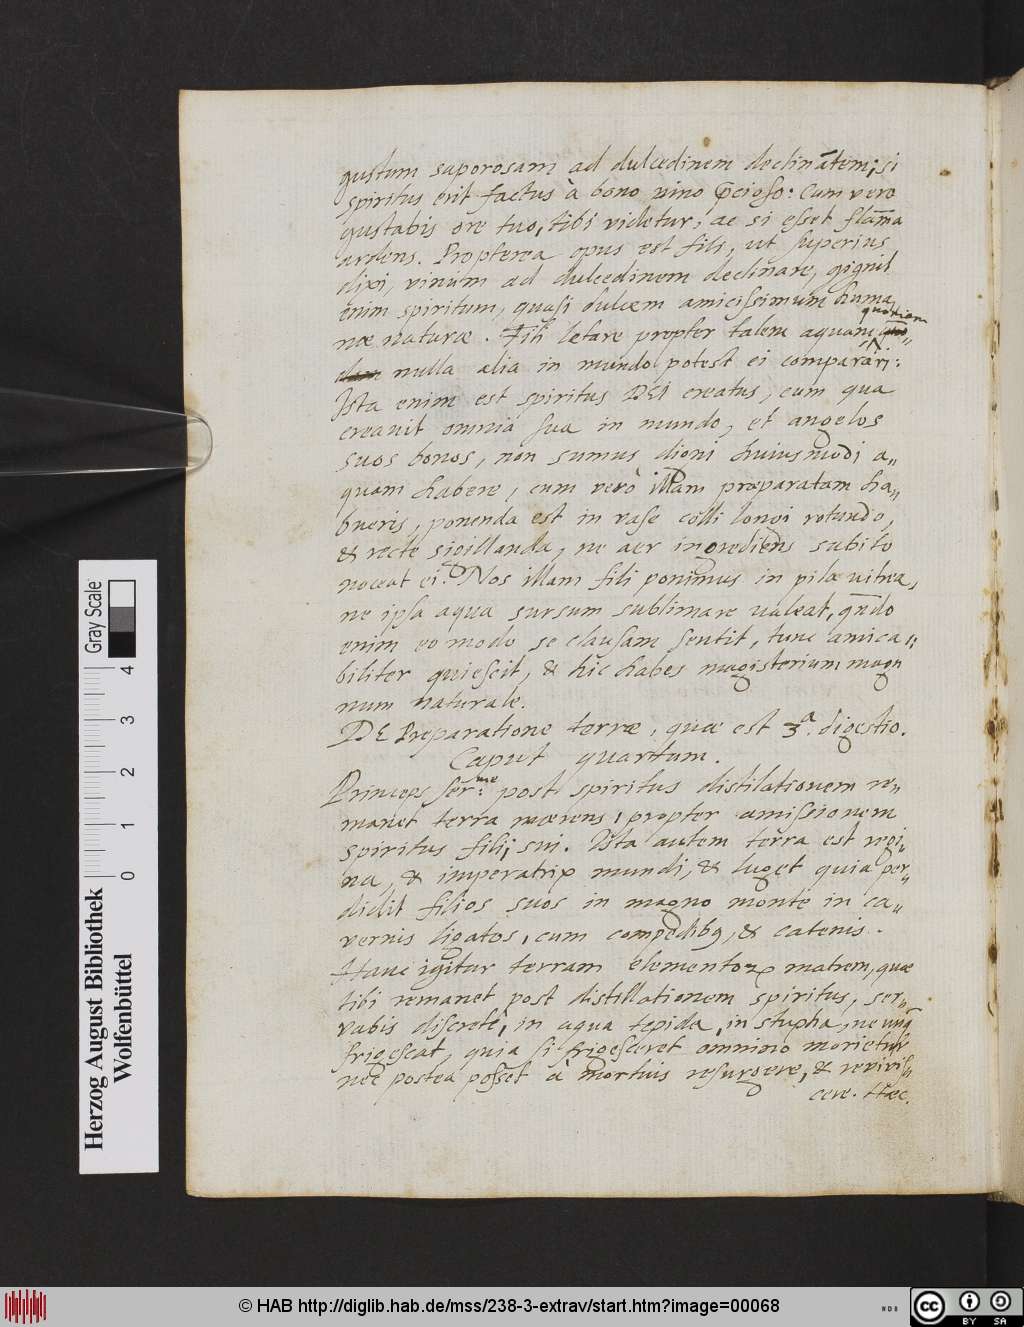 gustum saporosam ad dulcedinem declinātem; si
spiritus erit factus à bono uino p̄cioso: Cum vero
gustabis ore tuo, tibi videtur, ac si esset flām̄a
ardens. Propterea opus est fili, ut superius
dixi, vinum ad dulcedinem declinare, gignit
enim spiritum, quasi dulcem amicissimum huma
quoniam
næ naturæ. Fili letare propter talem aquam,
nulla alia in mundo potest ei comparari:
Ista enim est spiritus DEI creatus, cum qua
creauit omnia sua in mundo, et angelos
suos bonos, non sumus digni huiusmodi a„
quam habere, cum verò illam præparatam ha„
bueris, ponenda est in vase colli longi rotundo,
& recte sigillanda, ne aer ingrediens subito
noceat ei. Nos illam fili ponimus in pila vitrea,
ne ipsa aqua sursum sublimare ualeat, qn̄do
enim eo modo se clausam sentit, tunc amica„
biliter quiescit, & hic habes magisterium magn
num naturale.
DE Preparatione terræ, quæ est 3.ᵃ digestio.
Caput quartum.
Princeps Ser.ᵐᵉ post spiritus distilationem re„
manet terra mærens, propter amissionem
spiritus filij sui. Ista autem terra est regi„
na, & imperatrix mundi, & luget quia per„
didit filios suos in magno monte in ca„
vernis ligatos, cum compedibꝯ, & catenis.
Hanc igitur terram elementoꝝ matrem, quæ
tibi remanet post distillationem spiritus, ser„
vabis discretè, in aqua tepida, in stupha, ne unq̄
frigescat, quia si frigesceret omnino morietur
nec postea posset à mortuis resurgere, & revivis„
cere. Hæc
Herzog August Bibliothek
Wolfenbüttel
0 1 2 3 4
Gray Scale
© HAB http://diglib.hab.de/mss/238-3-extrav/start.htm?image=00068
cc BY SA